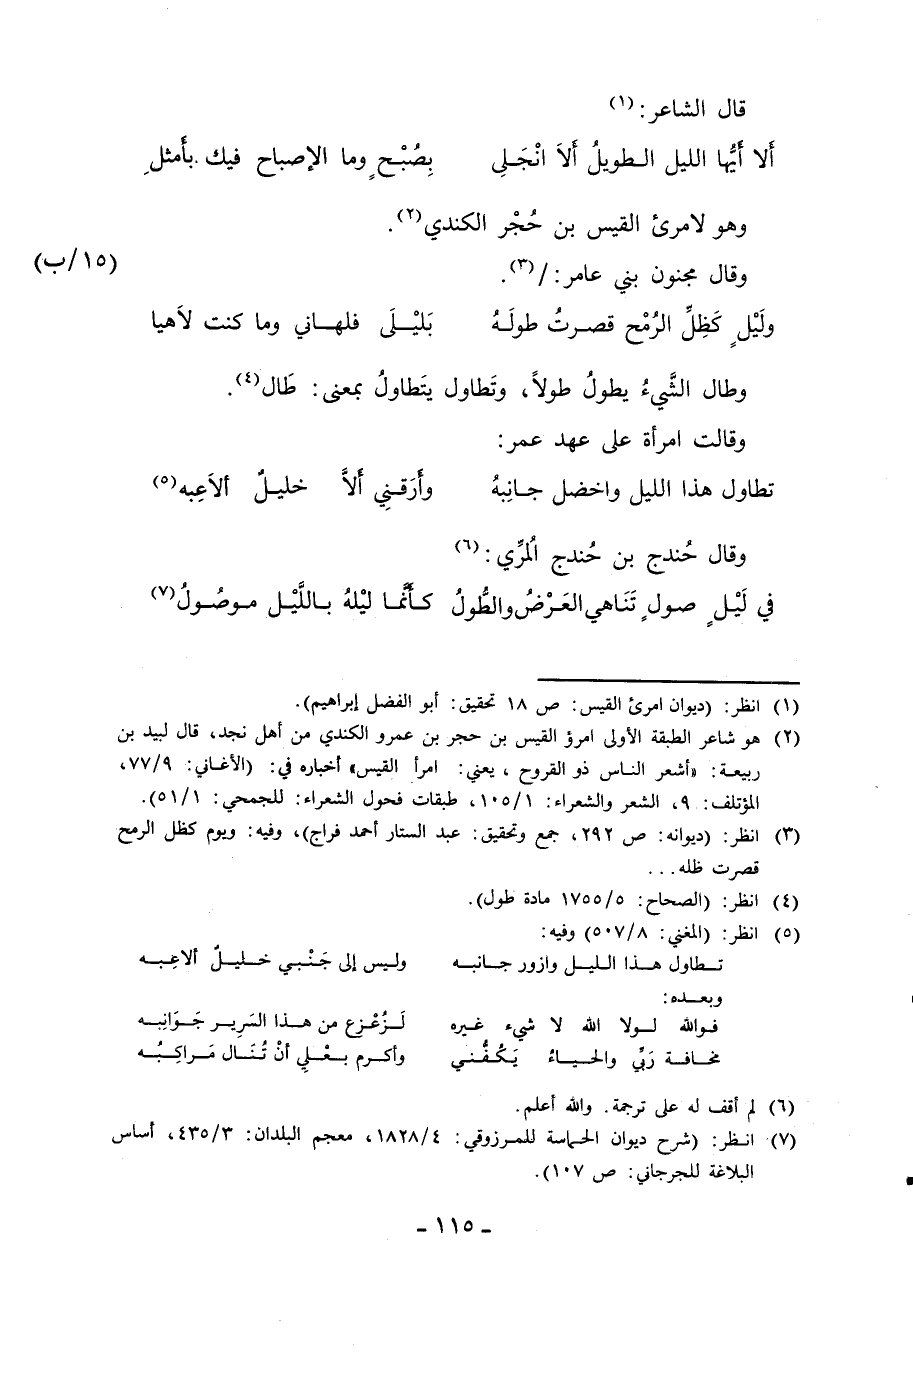 قال الشاعر: (١)
أَلا أَيُّها الليل الطويلُ أَلاَ انْجَلي بِصُبْحٍ وما الإصباح فيك بأَمثلِ
وهو لامرئ القيس بن حُجْر الكندي (٢).
(١٥/ب)
وقال مجنون بني عامر: / (٣).
ولَيْلٍ كَظِلِّ الرُمْح قصرتُ طولَهُ بَليْلَى فلهاني وما كنت لاَهيا
وطال الشَّيءُ يطولُ طولاً، وتَطاول يتَطاولُ بمعنى: طَال (٤).
وقالت امرأة على عهد عمر:
تطاول هذا الليل واخضل جانِبهُ وأَرَقني أَلاَّ خليلٌ ألاَعِبه (٥)
وقال حُندج بن حُندج الُمرِّي: (٦)
في لَيْلٍ صولٍ تَنَاهي العَرْضُ والطُّولُ كأَنَّما ليْلهُ باللَّيْل موصُولُ (٧)
(١) انظر: (ديوان امرئ القيس: ص ١٨ تحقيق: أبو الفضل إبراهيم).
(٢) هو شاعر الطبقة الأولى امرؤ القيس بن حجر بن عمرو الكندي من أهل نجد، قال لبيد بن
ربيعة: «أشعر الناس ذو القروح ، يعني: امرأ القيس» أخباره في: (الأغاني: ٧٧/٩،
المؤتلف: ٩، الشعر والشعراء: ١٠٥/١، طبقات فحول الشعراء: للجمحي: ٥١/١).
(٣) انظر: (ديوانه: ص ٢٩٢، جمع وتحقيق: عبد الستار أحمد فراج)، وفيه: ويوم كظل الرمح
قصرت ظله...
(٤) انظر: (الصحاح: ١٧٥٥/٥ مادة طول).
(٥) انظر: (المغني: ٥٠٧/٨) وفيه:
تطاول هذا الليل وازور جانبه وليس إلى جَنْبي خليلٌ ألاعِبه
وبعده:
فوالله لولا الله لا شيء غيره لَزُعْزِع من هذا السَرير جَوَانِبه
مخافة رَبِّي والحياءُ يَكُفُّني وأكرم بعْلي أنْ تُنَال مَراكِبُه
(٦) لم أقف له على ترجمة. والله أعلم.
(٧) انظر: (شرح ديوان الحماسة للمرزوقي: ١٨٢٨/٤، معجم البلدان: ٤٣٥/٣، أساس
البلاغة للجرجاني: ص ١٠٧).
ـ ١١٥ ـ